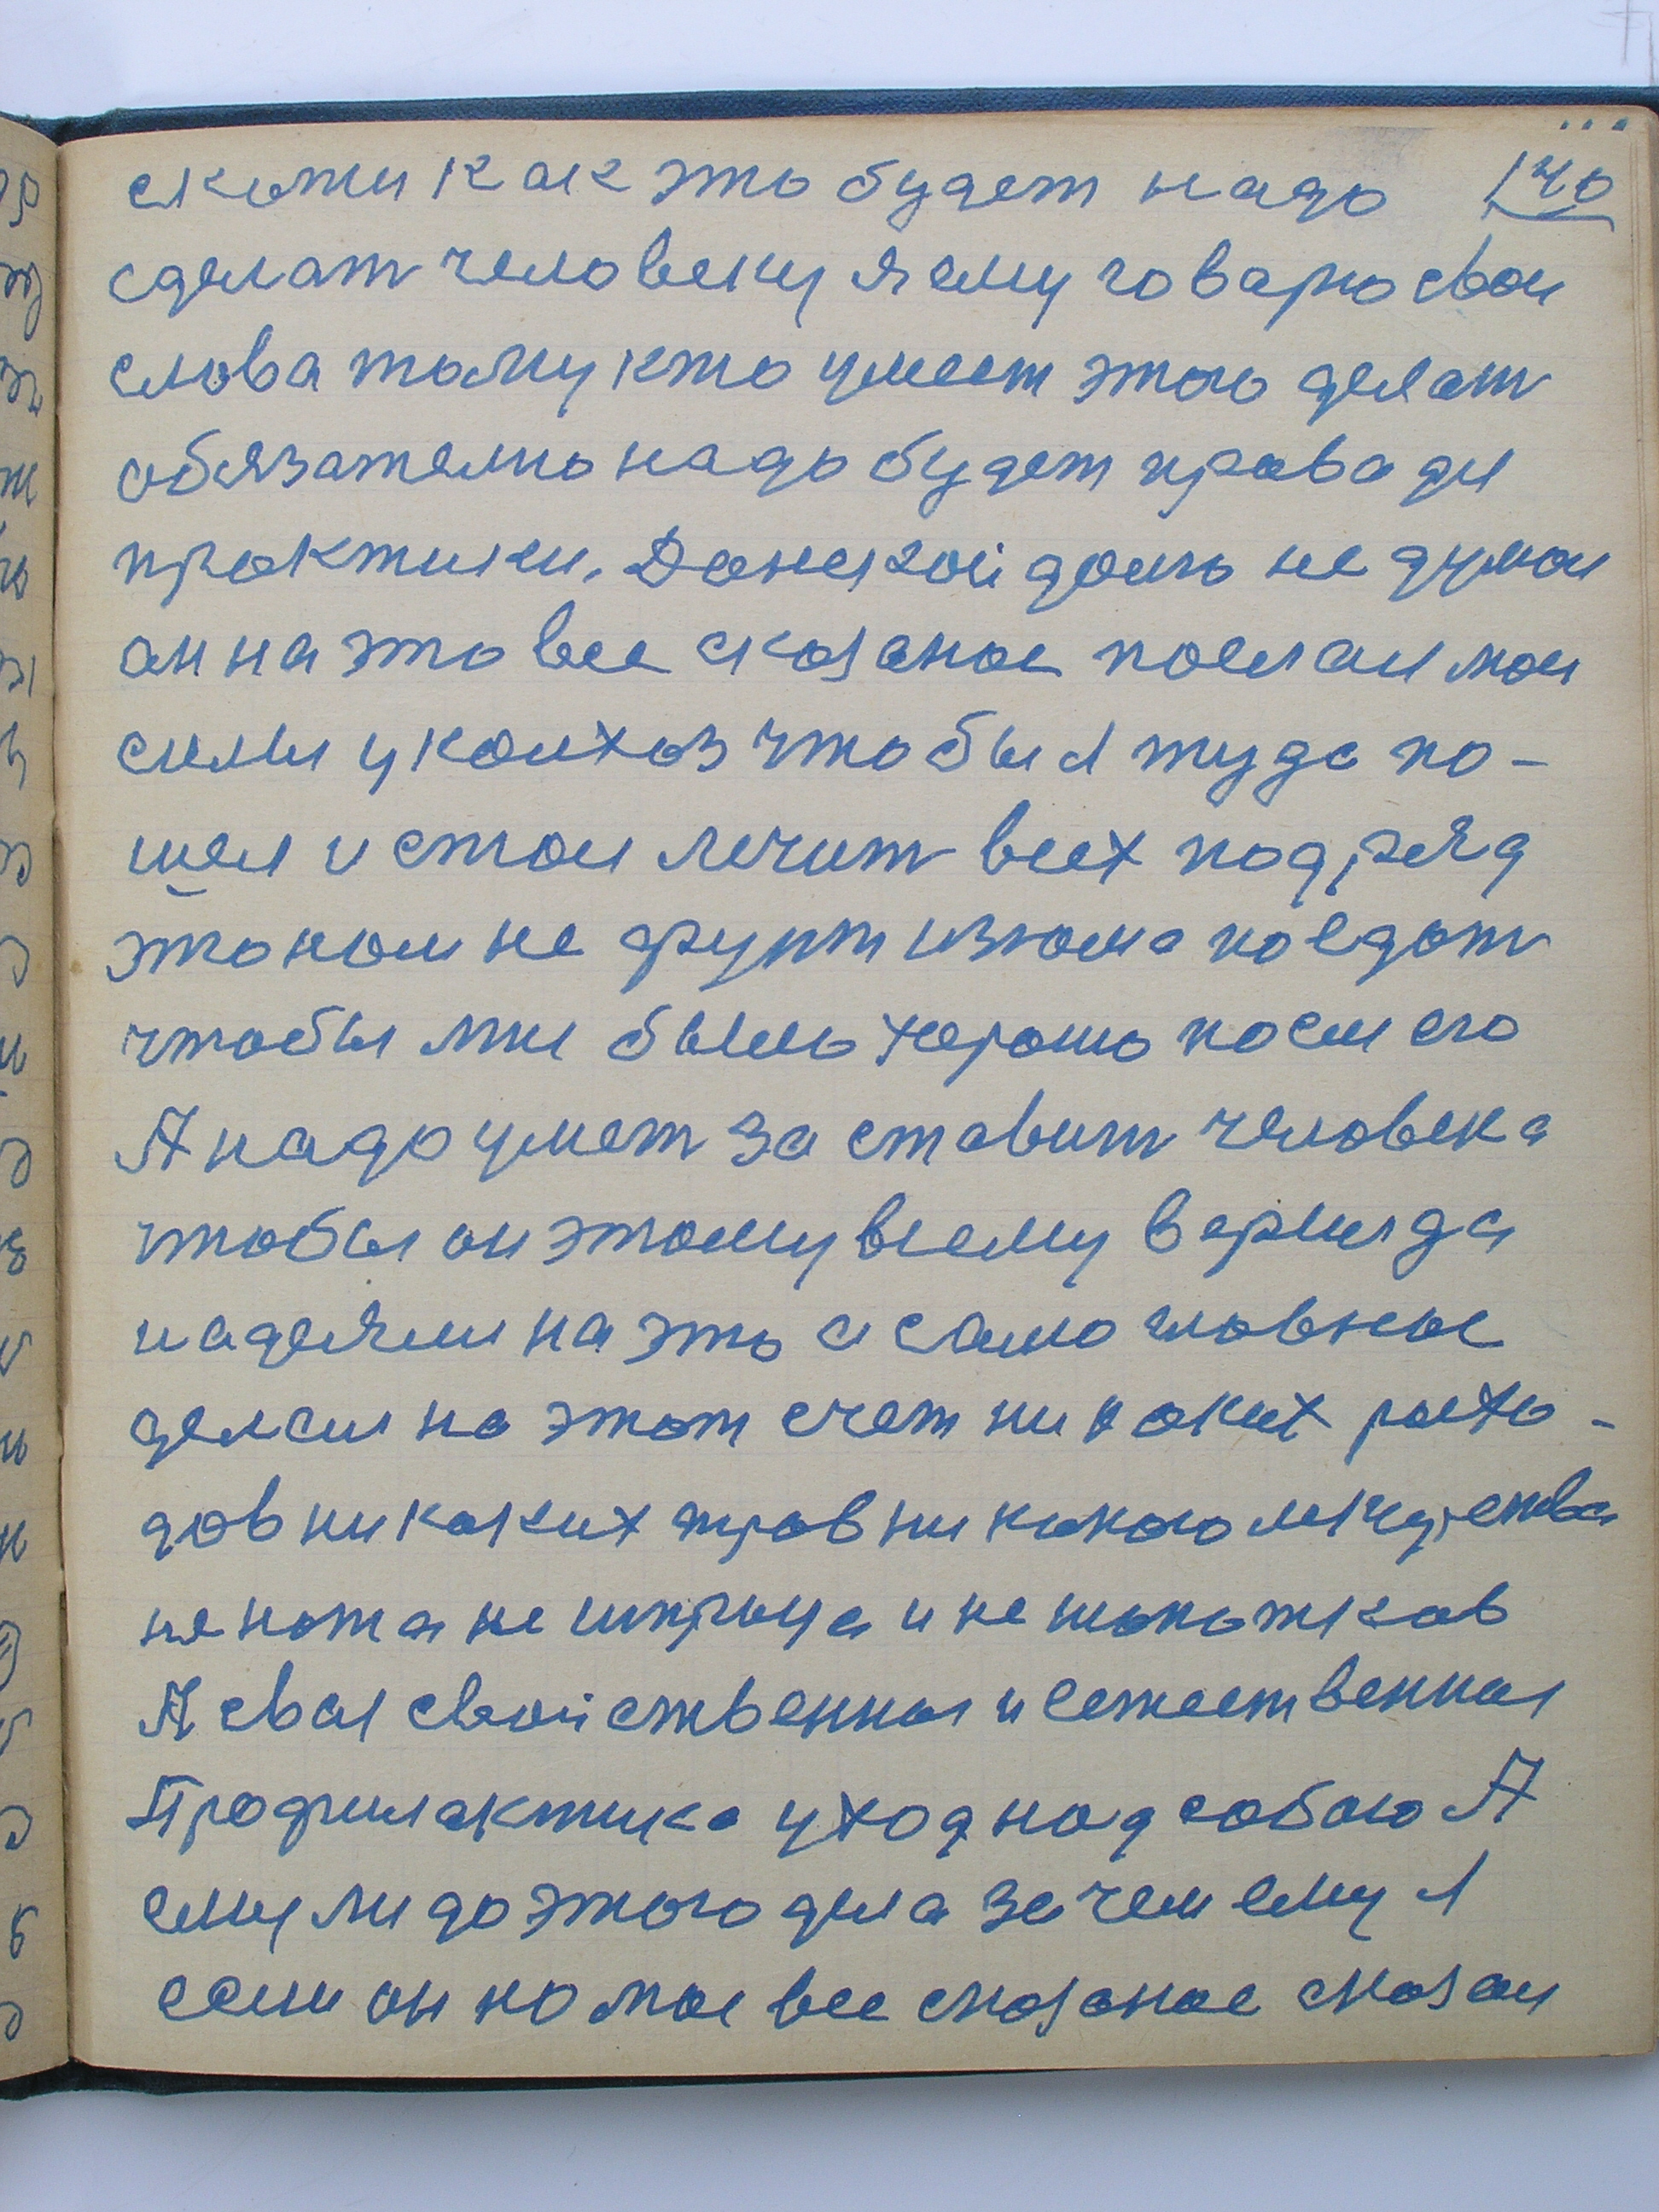 скажи как это будет надо 140
сделат человеку я ему говарю свои
слова тому кто умеет этого делат
обязателно надо будет права для
практики. Данской долго не думал
он на это все сказаное послал мои
силы у колхоз чтобы я туда по-
шел и стал лечит всех подряд
это нам не фунт изюма поедат
чтобы мне было хорошо после его
А надо умет заставит человека
чтобы он этому всему верил да
надеялся на это а само главное
делал на этот счет ни каких расхо-
дов ни каких трав ни какого лекарства
не ножа не шприца и не
А свая свойственная и естественная
Профилактика уход над собою А
ему ли до этого дела зачем ему я
если он на мое все сказаное сказал